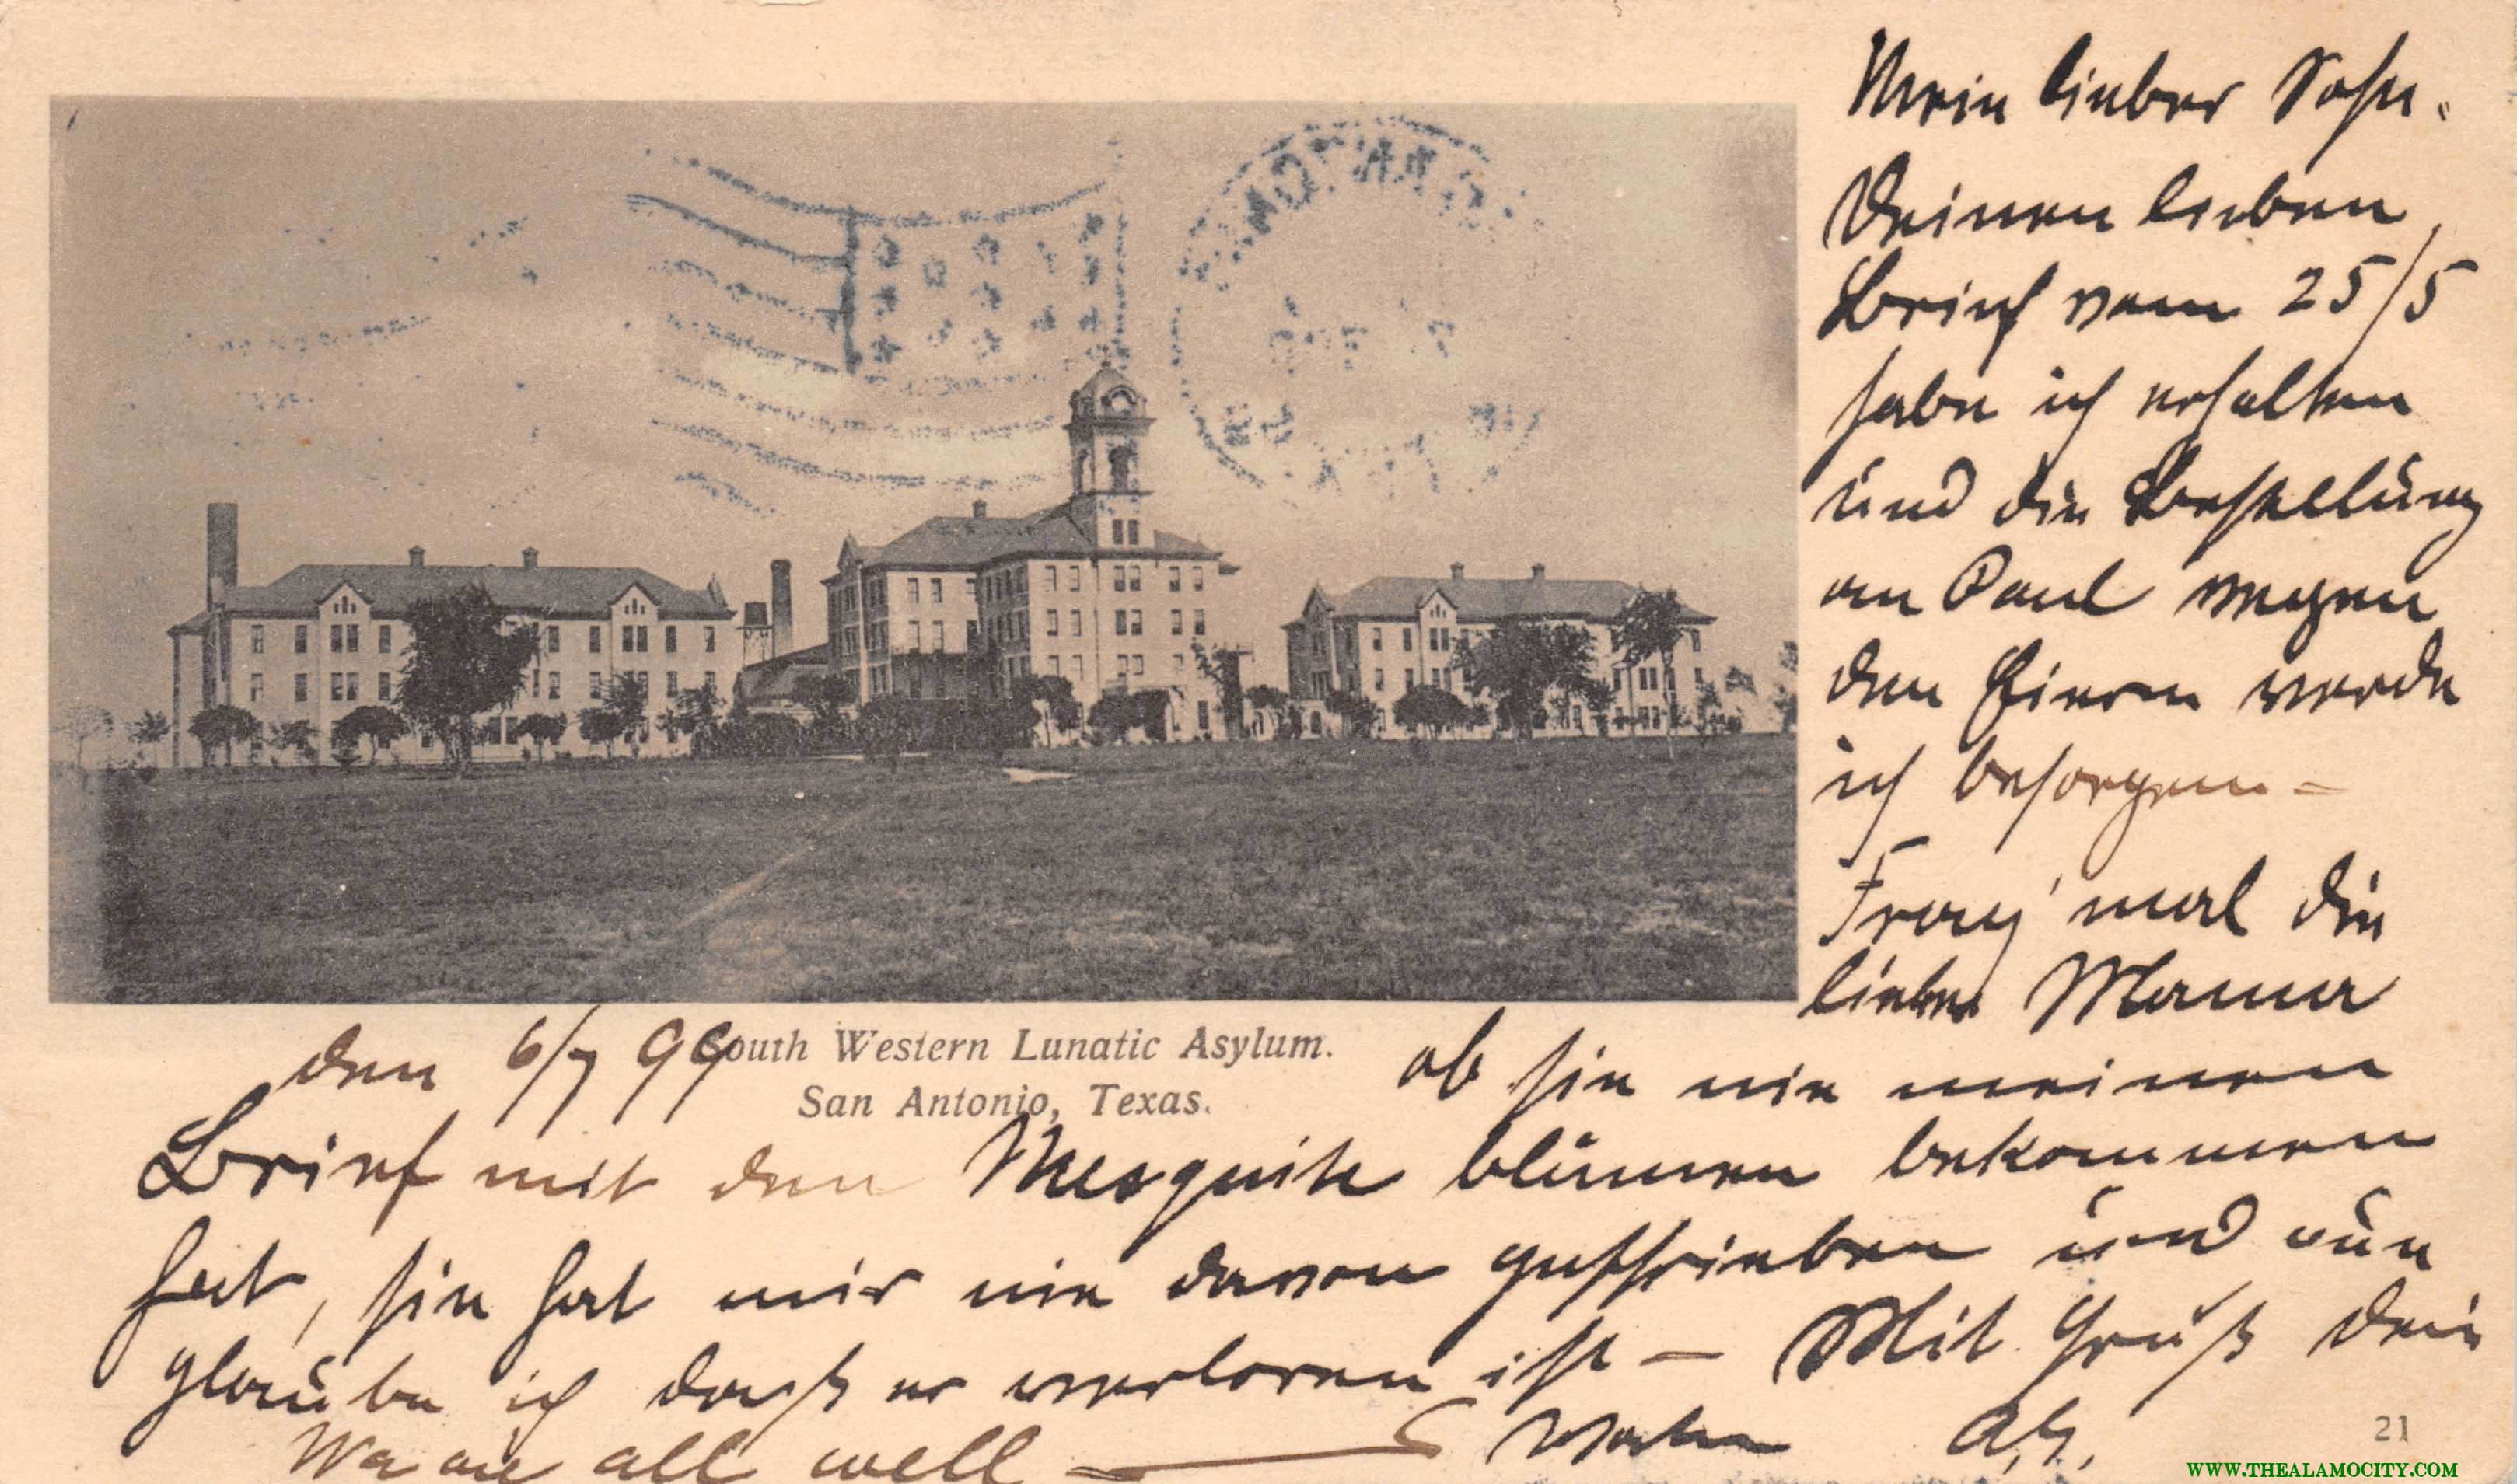 Mein lieber Sohn.
Deinen lieben
Brief vom 25/5
habe ich erhalten
und die Bestellung
an Paul wegen
den Eiern werde
ich besorgen =
Frag' mal die
liebe Mama
den 6/7 99
South Western Lunatic Asylum.
San Antonio, Texas.
ob sie nie meinen
Brief mit den Mesquite blumen bekommen
hat, sie hat mir nie davon geschrieben und nun
glaube ich daß er verloren ist — Mit Gruß dein
We are all well — Vater A.G.
21
WWW.THEALAMOCITY.COM